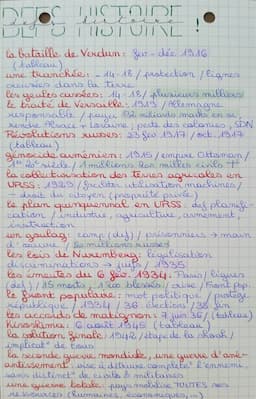 DEFS HISTOIRE !
la bataille de Verdun: fev - déc 1916
(tableau)
une tranchée: - 14-18 / protection / lignes
creusées dans la terre
les gueules cassées: 14-18 / plusieurs millions
le traité de Versaille: 1919 / Allemagne
responsable / paye 132 milliards marks en or
rendre Alsace + Loraine; perte des colonies, SDN
Révolutions russes: 23 fev 1917 / oct 1917
(tableau)
génocide arménien: 1915 / empire Ottoman /
1er 20e siècle / 1 millions 200 milles civils †
la collectivisation des terres agricoles en
URSS: 1929 / faciliter utilisation machines /
droit du citoyen (propriété privée)
le plan quinquennal en URSS: def planifi-
cation / industrie, agriculture, armement,
instruction
un goulag: camp (def) / prisonniers → main
d'œuvre / 20 millions russes
les lois de Nuremberg: législation
discriminations → juifs / 1935
les émeutes du 6 fev. 1934: Paris / ligues
(def) / 15 morts, 1400 blessés / crise / Front pop.
le front populaire: mot politique / protège
république / 1934 / 36 élections / 38 fin
les accords de matignon: 7 juin 36 / (tableau)
Hiroshima: 6 août 1945 (tableau)
la solution finale: 1942 / étape de la shoah /
implicat° de tous
la seconde guerre mondiale, une guerre d'ané-
antissement: vise à détruire complèt° l'ennemi,
sans distinct° de civils & militaires
une guerre totale: pays mobilise TOUTES ses
ressources (humaines, économiques, ...)